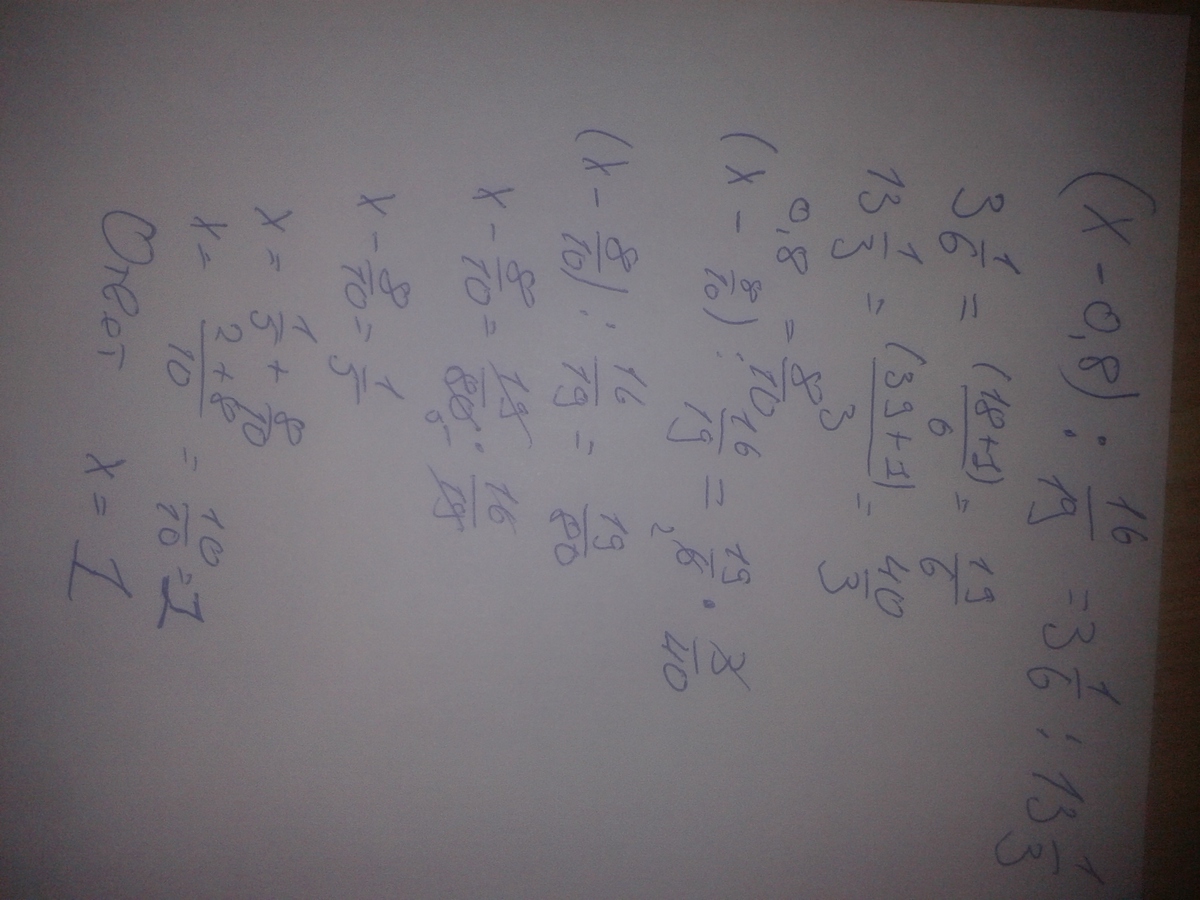 (x - 0,8) : 16/19 = 3 1/6 : 13 1/3
3 1/6 = (18+1)/6 = 19/6
13 1/3 = (39+1)/3 = 40/3
0,8 = 8/10
(x - 8/10) : 16/19 = 19/6 2 · 3/40
(x - 8/10) : 16/19 = 19/80
x - 8/10 = 19/80 5 · 16/19
x - 8/10 = 1/5
x = 1/5 + 8/10
x = 2+8/10 = 10/10 = 1
Ответ x = 1